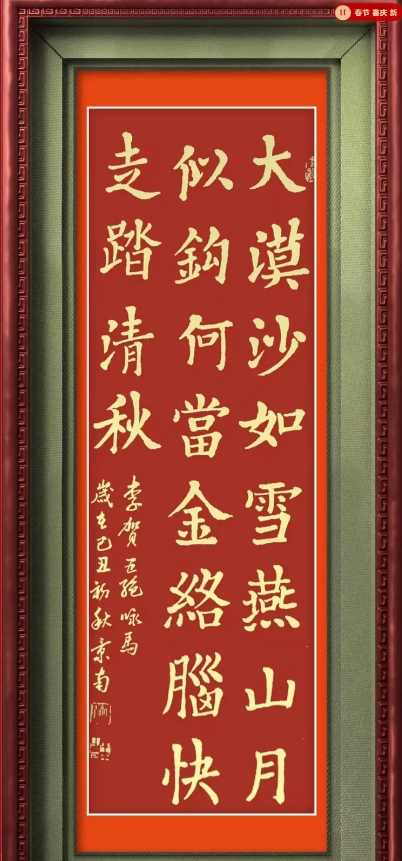 大漠沙如雪燕山月
似鈎何當金絡腦快
走踏清秋
李賀五絕咏馬
歲在己丑初秋景南
春节 喜庆 新